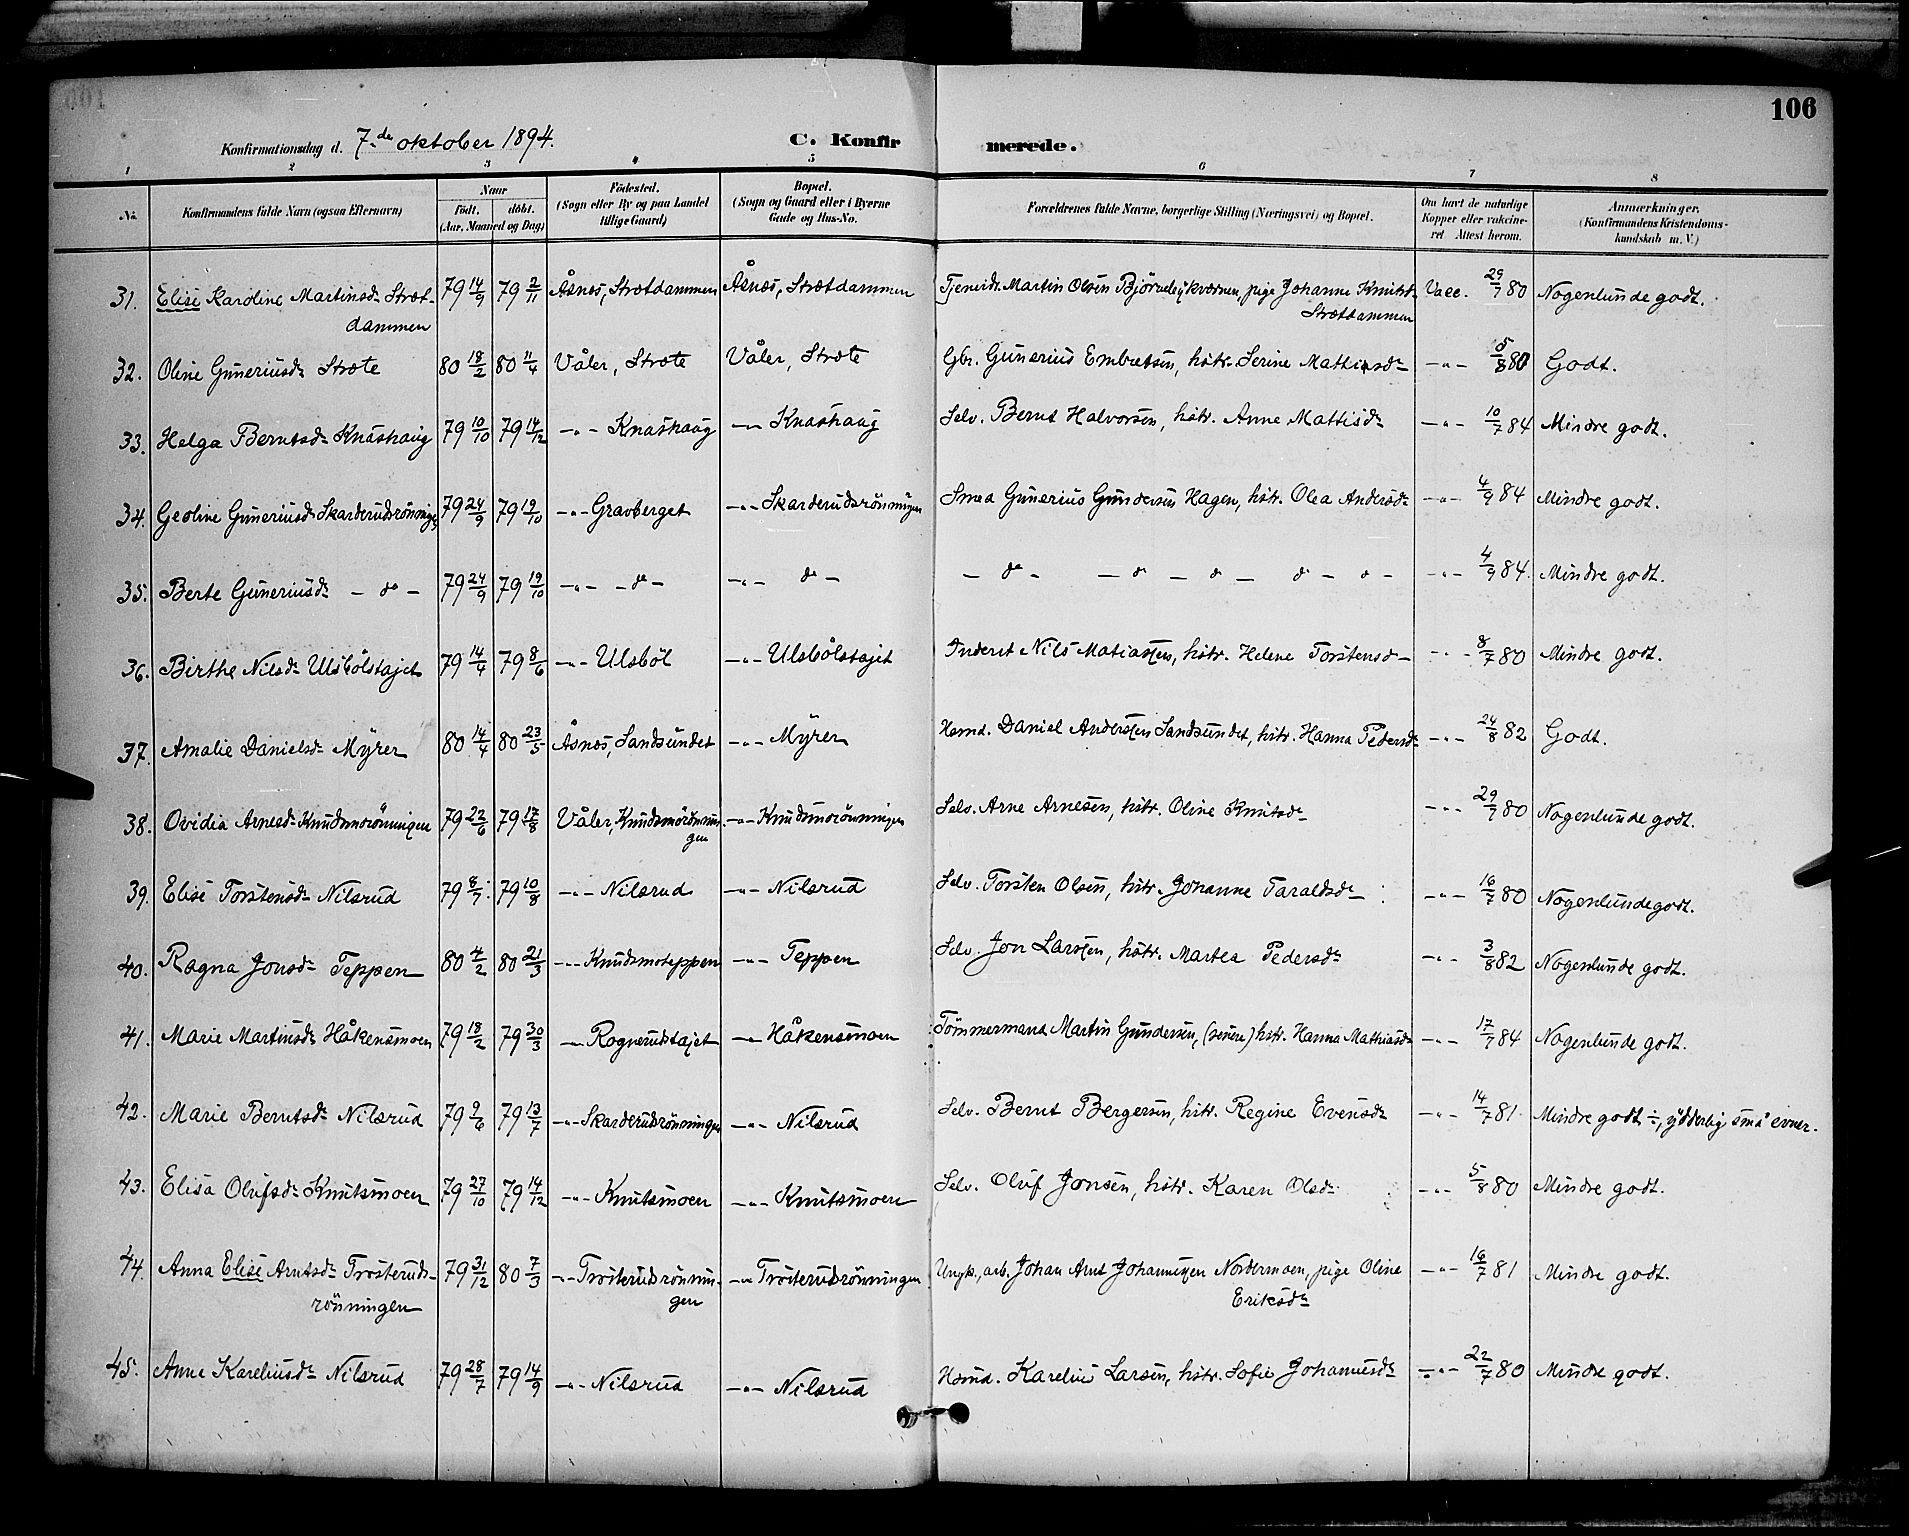 106
Konfirmationsdag d. 7.de oktober 1894. C. Konfirmerede.
1 2 3 4 5 6 7 8
No. Konfirmandens fulde Navn (ogsaa Efternavn) Naar født, døbt. (Aar, Maaned og Dag) Födested. (Sogn eller By og paa Landet tillige Gaard) Bopæl. (Sogn og Gaard eller i Byerne Gade og Hus-No. Forældrenes fulde Navne, borgerlige Stilling (Næringsvei) og Bopæl. Om havt de naturlige Kopper eller vakcineret Attest herom. Anmærkninger, (Konfirmandens Kristendomskundskab m. V.)
31. Elise Karoline Martinsdr Stræt- 79 14/9 79 2/11 Åsnes, Strætdammen Åsnæs, Strætdammen Tjenerdr. Martin Olsen pige Johanne Knutsd Vacc. 29/7 80 Nogenlunde godt.
dammen Strætdammen
32. Oline Guneriusdr Stræte 80 18/2 80 11/4 Våler, Stræte Våler, Stræte Gbr. Gunerius Embretsen, hstr. Serine Mathiasdr -"- 5/8 80 Godt.
33. Helga Berntsdr Knashaug 79 10/10 79 14/12 -"- Knashaug -"- Knashaug Selv. Bernt Halvorsen, hstr. Anne Mattisdr -"- 10/7 84 Mindre godt.
34. Geoline Guneriusdr Skarderudsrönningen 79 24/9 79 19/10 -"- Gravberget -"- Skarderudsrönningen Smed Gunerius Gundersen Hagen, hstr. Olea Andersdr -"- 4/9 84 Mindre godt.
35. Berte Guneriusdr - do - 79 24/9 79 19/10 -"- - do - -"- do - - do - - do - do - do - do - -"- 4/9 84. Mindre godt.
36. Birthe Nilsdr Ulsbölstajet 79 14/4 79 8/6 -"- Ulsböl -"- Ulsbölstajet Inderst Nils Matiassen, hstr. Helene Torstensd -"- 8/7 80 Mindre godt.
37. Amalie Danielsdr Myrer 80 14/4 80 23/5 Åsnes, Sandsundet -"- Myrer Hsmd. Daniel Anderssen Sandsundet, hstr. Hanna Pedersdr -"- 24/8 82 Godt.
38. Ovidia Arnesdr Knudsmorönningen 79 22/6 79 17/8 Våler, Knudsmorönnin- -"- Knudsmorönningen Selv. Arne Arnesen, hstr. Oline Knutsdr -"- 29/7 80 Nogenlunde godt.
gen
39. Elise Torstensdr Nilsrud 79 8/7. 79 10/8 -"- Nilsrud -"- Nilsrud Selv. Torsten Olsen, hstr. Johanne Taraldsdr -"- 16/7 80 Nogenlunde godt.
40. Ragna Jonsdr Teppen 80 4/2 80 21/3 -"- Knudsmoteppen -"- Teppen Selv. Jon Larssen, hstr. Martea Pedersdr -"- 3/8 82 Nogenlunde godt.
41. Marie Martinsdr Håkensmoen 79 18/2 79 30/3 -"- Rognerudstajet -"- Håkensmoen Tömmermand Martin Gundersen, hstr. Hanna Mathiasdr -"- 17/7 84 Nogenlunde godt.
42. Marie Berntsdr Nilsrud 79 9/6 79 13/7 -"- Skarderudsrönningen -"- Nilsrud Selv. Bernt Bergersen, hstr. Regine Evensdr -"- 14/7 81. Mindre godt ÷, yderlig små evner.
43. Elisa Olufsdr Knutsmoen 79 27/10 79 14/12 -"- Knutsmoen -"- Knutsmoen Selv. Oluf Jonsen, hstr. Karen Olsdr -"- 5/8 80 Mindre godt.
44. Anna Elise Arntsdr Trosteruds- 79 31/12 80 7/3 -"- Trosterudsrönnin- -"- Trosterudsrönningen Ungk., arb. Johan Arnt Johannessen Nordermoen, pige Oline -"- 16/7 81 Mindre godt.
rönningen gen Eriksdr
45. Anne Kareliusdr Nilsrud 79 28/7 79 14/9 -"- Nilsrud -"- Nilsrud Hsmd. Karelius Larsen, hstr. Sofie Johannesdr -"- 22/7 80 Mindre godt.